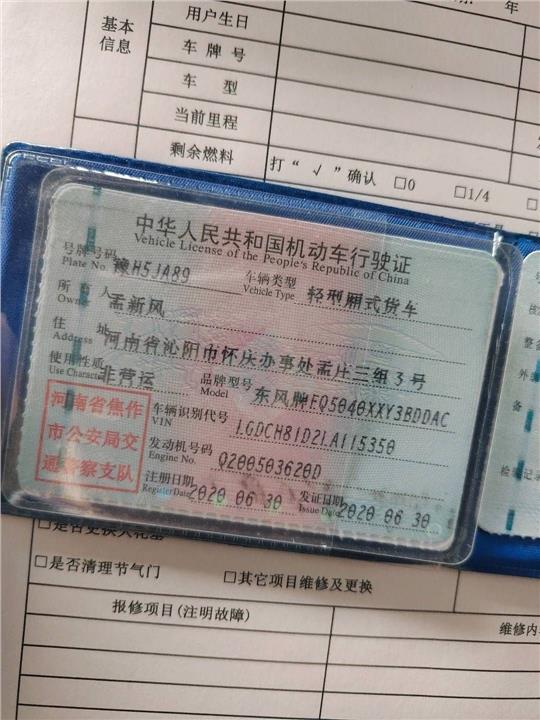 年
用户生日
基本
信息
车 牌 号
车 型
当前里程
剩余燃料
打“ √ ”确认 □0 □1/4
中华人民共和国机动车行驶证
Vehicle License of the People's Republic of China
号牌号码 豫H5JA89 车辆类型 轻型厢式货车
Plate No. Vehicle Type
所 有 人 孟新风
Owner
住 址 河南省沁阳市怀庆办事处孟庄三组3号
Address
使用性质 非营运 品牌型号 东风牌EQ5040XXY3BDDAC
Use Character Model
河南省焦作
市公安局交
通警察支队
车辆识别代号 LGDCH81D2LA115350
VIN
发动机号码 Q200503620D
Engine No.
注册日期 2020 06 30 发证日期 2020 06 30
Register Date Issue Date
□是否清理节气门 □其它项目维修及更换
报修项目(注明故障) 维修内